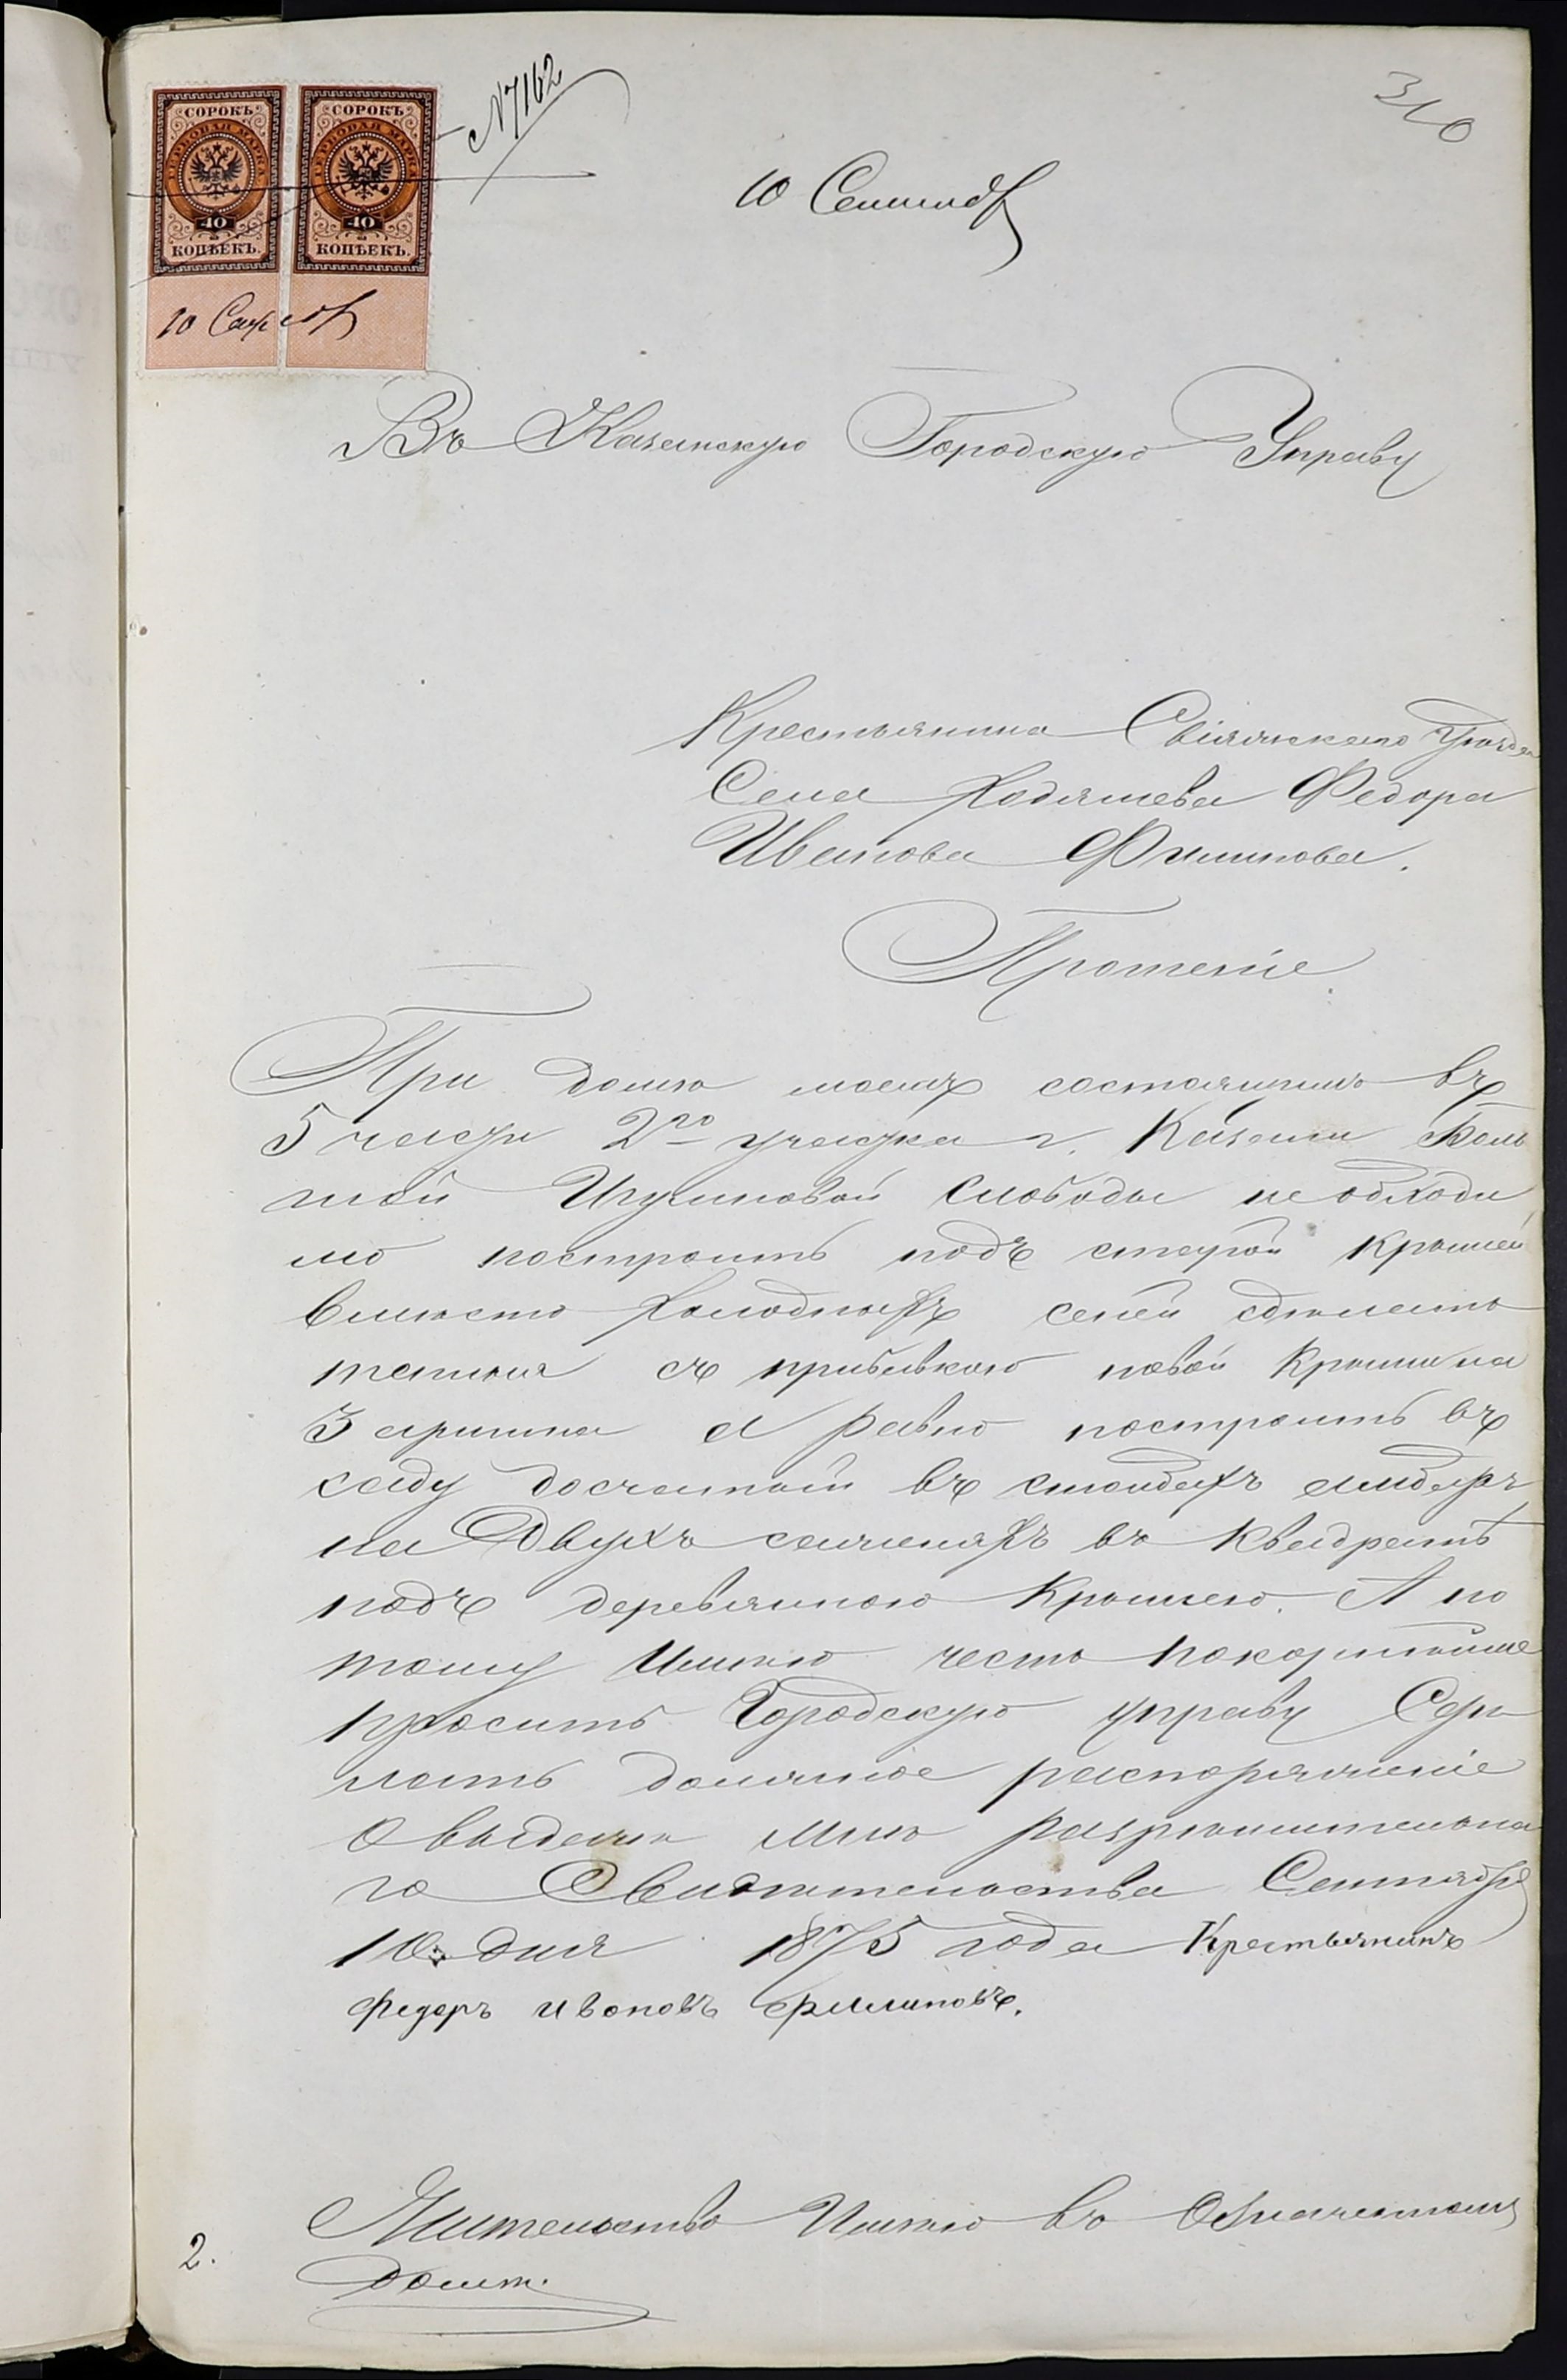 310
№ 7162
СОРОКЪ СОРОКЪ
ГЕРБОВАЯ МАРКА ГЕРБОВАЯ МАРКА
40 40
КОПѢЕКЪ. КОПѢЕКЪ.
10 Сентяб
10 Сентяб
Въ Казанскую Городскую Управу
Крестьянина Свіяжскаго Уѣзда
Села Ходяшева Федора
Иванова Филипова.
Прошеніе
При домѣ моемъ состоящимъ въ
5 части 2го участка г. Казани Боль
шой Игумновой слободы необходи
мо построить подъ старой крышей
вместо холодныхъ сеней сдѣлать
теплыя съ прибавкою новой крыши на
3 аршина а равно построить въ
саду досчатый въ столбахъ амбаръ
на Двухъ саженяхъ въ квадратѣ
подъ деревянною крышею. А по
тому Имѣю честь покорнѣйше
просить Городскую управу Сдѣ
лать должное распоряженіе
о выдачи мнѣ разрѣшительна
го Свидѣтельства Сентября
10 дня 1875 года Крестьянинъ
федоръ ивановъ филиповъ.
Жительство Имѣю въ Означенномъ
домѣ.
2.